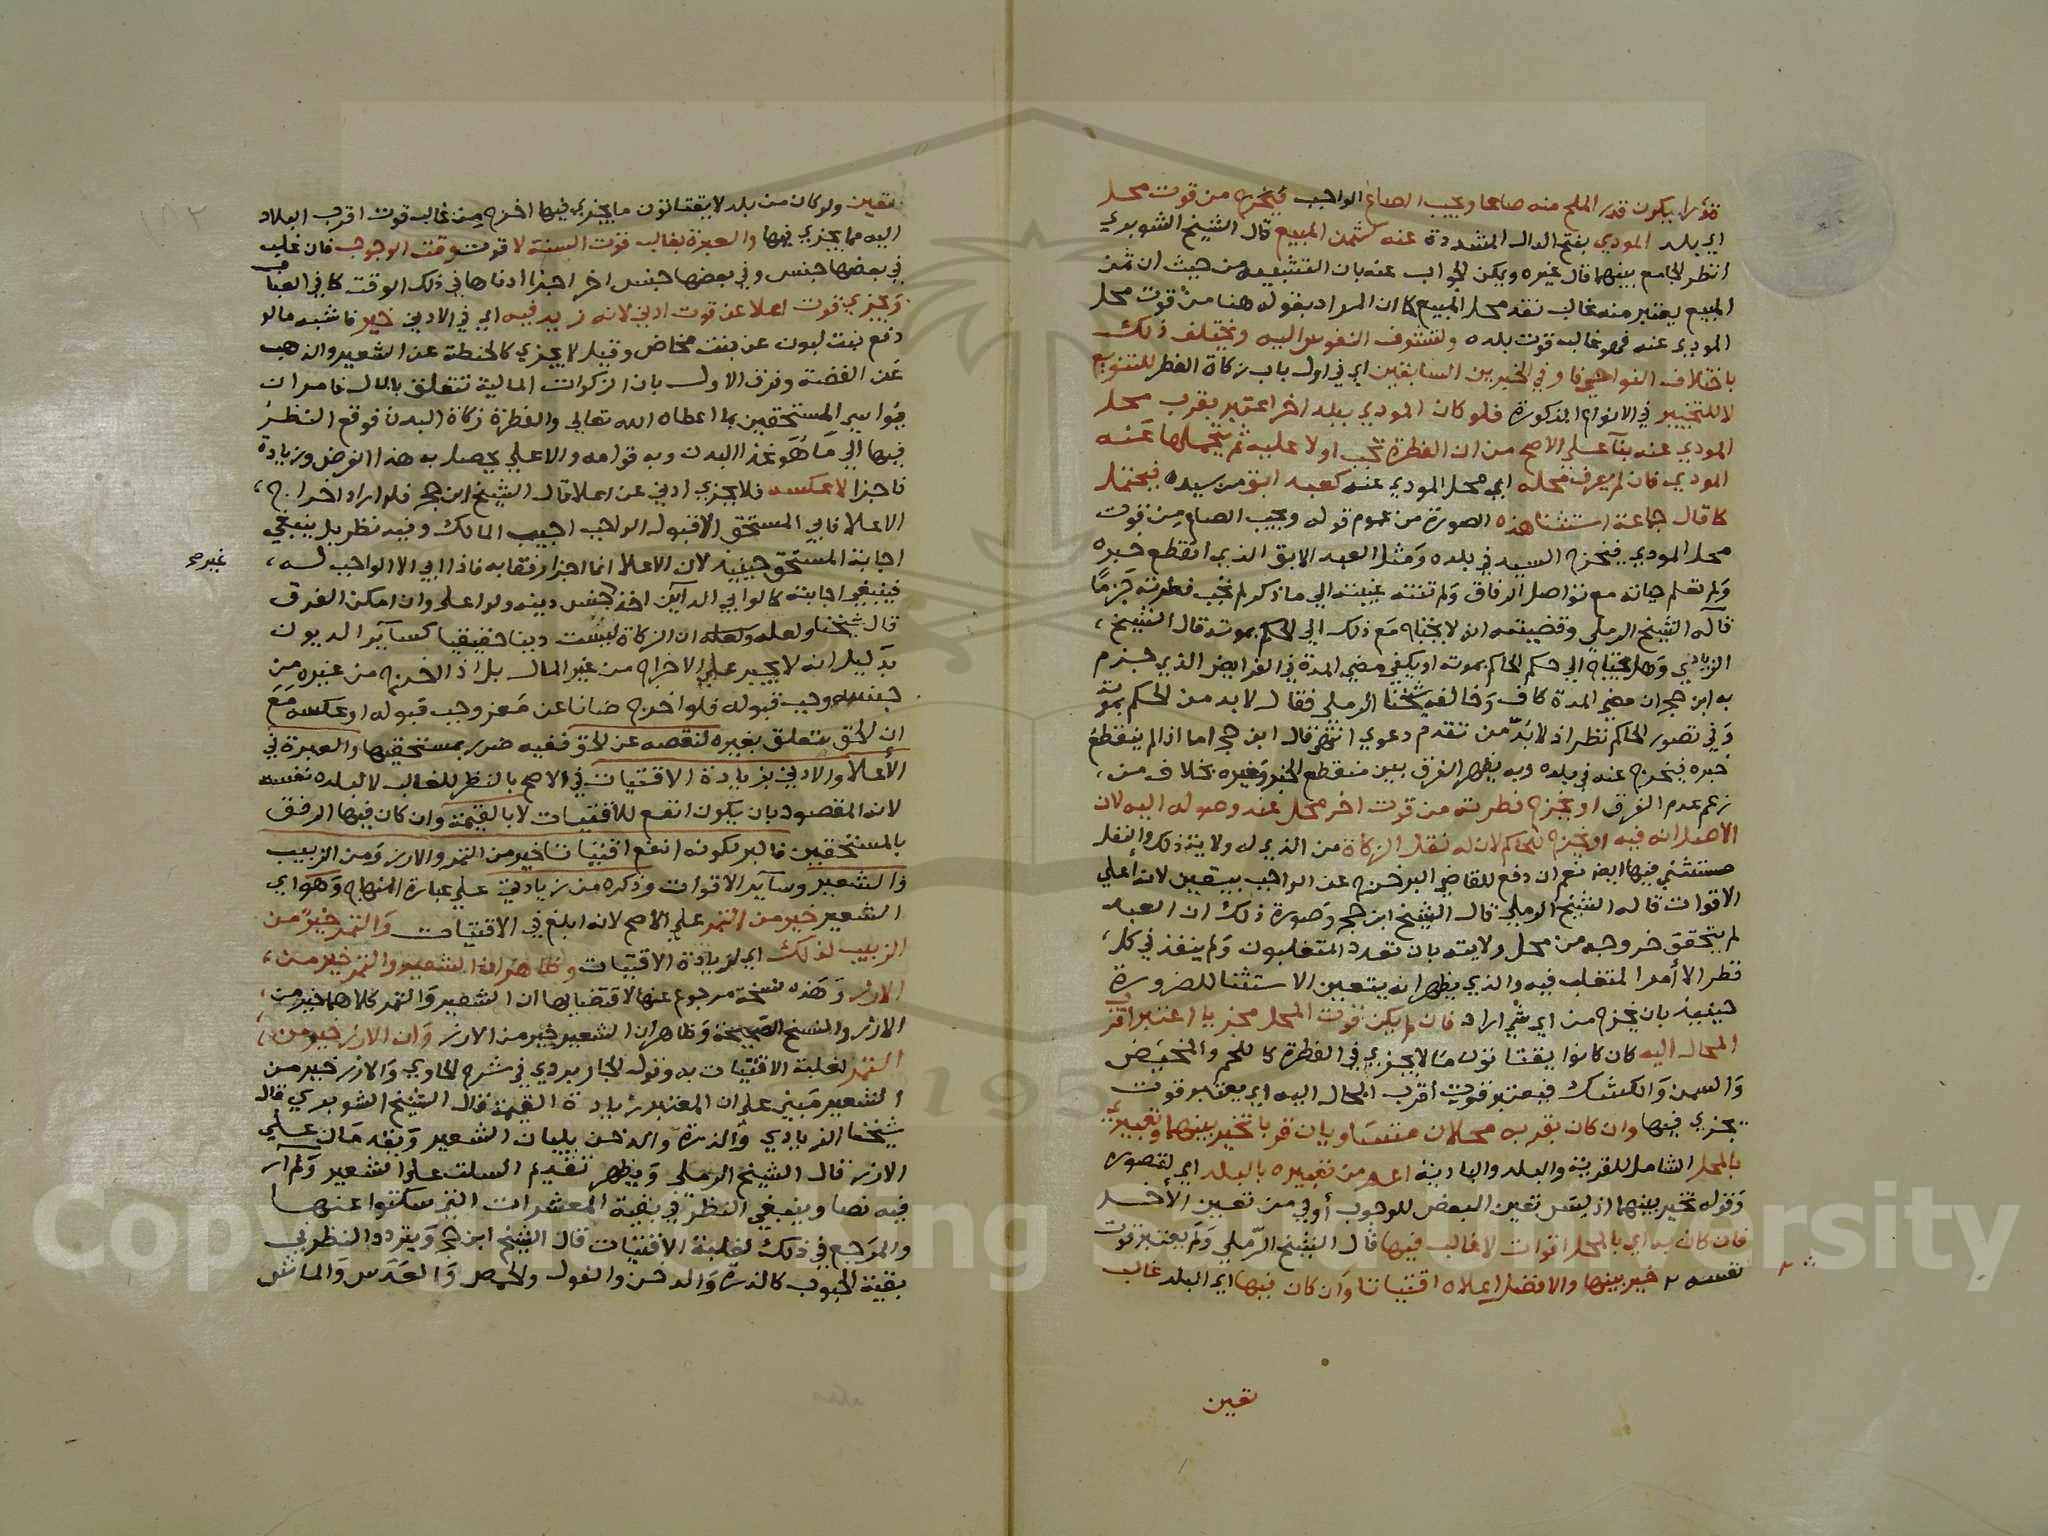 قوله يكون قدر الملح منه صاعا ويجب الصاع الواجب فيخرج من قوت محل
اي بلد المودي بفتح الدال المشددة عنه كثمن المبيع قال الشيخ الشوبري
انظر الجامع بينهما قال غيره ويمكن الجواب عنه بان التشبيه من حيث ان ثمن
المبيع يعتبر منه غالب نقد محل المبيع كما ان المراد بقوله هنا من قوت محل
المودي عنه فهو غالب قوت بلده ولتشوف النفوس اليه ويختلف ذلك
باختلاف النواحي فاو في الخبرين السابقين اي في اول باب زكاة الفطر للتنويع
لا للتخيير في الانواع المذكورة فلو كان المودي ببلد اخر اعتبر بقرب محل
المودي عنه بنآ علي الاصح من ان الفطرة تجب اولا عليه ثم يتحملها عنه
المودي فان لم يعرف محله اي محل المودي عنه كعبد ابق من سيده فيحتمل
كما قال جماعة استثنا هذه الصورة من عموم قوله ويجب الصاع من قوت
محل المودي فيخرج السيد في بلده ومثل العبد الابق الذي انقطع خبره
ولم تعلم حياته مع تواصل الرفاق ولم تنته غيبته الي ما ذكر لم تجب فطرته جزما
قآله الشيخ الرملي وقضيته انه لا يحتاج مع ذلك الي الحكم بموته قال الشيخ
الزيادي وهل يحتاج الي حكم الحاكم بموته او يكفي مضي المدة في الفرايض الذي جزم
به ابن حجر ان مضي المدة كاف وخالفه شيخنا الرملي فقال لا بد من الحكم بموته
وفي تصور الحاكم نظر اذ لا بد من تقدم دعوي انتهي قال ابن حجر اما اذا لم ينقطع
خبره فيخرج عنه في بلده وبه يظهر الفرق بين منقطع الخبر وغيره بخلاف من
زعم عدم الفرق او يخرج فطرته من قوت اخر محل عهد وصوله اليه لان
الاصل انه فيه او يخرج للحاكم لان له نقل الزكاة من الذي له ولاية ذلك والنقل
مستثني فيها ايضا نعم ان دفع للقاضي البر خرج عن الواجب بيقين لانه اعلي
الاقوات قاله الشيخ الرملي قال الشيخ ابن حجر وصورة ذلك ان العبد
لم يتحقق خروجه من محل ولايته بان تعدد المتغلبون ولم ينفذ في كل
قطر الا أمر المتغلب فيه والذي يظهر انه يتعين الاستثنا للضرورة
حينيذ بان يخرج من اي شي اراد فان لم يكن قوت المحل مجزيا اعتبر اقرب
المحال اليه كان كانوا يقتاتون ما لا يجزي في الفطرة كاللحم والمخيض
والسمن والكشك فيعتبر قوت أقرب المحال اليه اي يعتبر قوت
يجزي فيها وان كان بقربه محلان متساويان قربا تخير بينهما وتعبيري
بالمحل الشامل للقرية والبلد والبادية اعم من تعبيره بالبلد اي لقصوره
وقوله تخير بينهما اذ ليس تعين البعض للوجوب أولي من تعين الأخر
فان كان به اي بالمحل اقوات لا غالب فيها قال الشيخ الرملي ولم يعتبر قوت
نفسه خير بينها والافضل اعلاه اقتياتا وان كان فيها اي البلد غالب
تعين
تعين ولو كان من بلد لا يقتاتون ما يجزي فيها اخرج من غالب قوت اقرب البلاد
اليه مما يجزي فيها والعبرة بغالب قوت السنة لا قوت وقت الوجوب فان غلب
في بعضها جنس وفي بعضها جنس اخر اجزا ادناها في ذلك الوقت كما في العباب
ويجزي قوت اعلا عن قوت ادني لانه زيد فيه اي في الادني خير فاشبه ما لو
دفع بنت لبون عن بنت مخاض وقيل لا يجزي كالحنطة عن الشعير والذهب
عن الفضة وفرق الاول بان الزكوات المالية تتعلق بالمال فامر ان
يواسي المستحقين بما اعطاه الله تعالي والفطرة زكاة البدن فوقع النظر
فيها الي ما هو غذا البدن وبه قوامه والاعلي يحصل به هذا الغرض وزيادة
فاجزا لا عكسه فلا يجزي ادني عن اعلا قال الشيخ ابن حجر فلو اراد اخراج
الاعلا فابي المستحق الا قبول الواجب اجيب المالك وفيه نظر بل ينبغي
اجابة المستحق حينيذ لان الاعلا انما اجزا رفقا به فاذا ابي الا الواجب له
فينبغي اجابته كما لو ابي الدآين اخذ جنس دينه ولو اعلي وان امكن الفرق
غيره
قال شيخنا ولعله ولعله ان الزكاة ليست دينا حقيقيا كساير الديون
بدليل انه لا يجبر علي الاخراج من غير المال بل اذا اخرج من غيره من
جنسه وجب قبوله فلو اخرج ضانا عن معز وجب قبوله او عكسه مع
ان الحق يتعلق بغيره لنقصه عن الحق ففيه ضرر بمستحقيها والعبرة في
الأعلا والادني بزيادة الاقتيات في الاصح بالنظر للغالب لا لبلده نفسه
لانه المقصود بان يكون انفع للأقتيات لا بالقيمة وان كان فيها الرفق
بالمستحقين فالبر لكونه انفع اقتياتا خير من التمر والارز ومن الزبيب
والشعير وساير الاقوات وذكره من زيادتي علي عبارة المنهاج وهو اي
الشعير خير من التمر علي الاصح لانه ابلغ في الاقتيات والتمر خير من
الزبيب لذلك اي لزيادة الاقتيات وظاهر ان الشعير والتمر خير من
الارز وهذه نسخة مرجوع عنها لاقتضايها ان الشعير والتمر كلاهما خير من
الارز والنسخ الصحيحة وظاهر ان الشعير خير من الارز وان الارز خير من
التمر لغلبة الاقتيات به وقول الجاربردي في شرح الحاوي والارز خير من
الشعير مبني علي ان المعتبر زيادة القيمة قال الشيخ الشوبري قال
شيخنا الزيادي والذرة والدخن يليان الشعير ويقدمان علي
الارز قال الشيخ الرملي ويظهر تقديم السلت علي الشعير ولم أر
فيه نصا وينبغي النظر في بقية المعشرات التي سكتوا عنها
والمرجع في ذلك لغلبة الاقتيات قال الشيخ ابن حجر ويتردد النظر في
بقية الحبوب كالذرة والدخن والفول والحمص والعدس والماش
Copyright © King Saud University
195